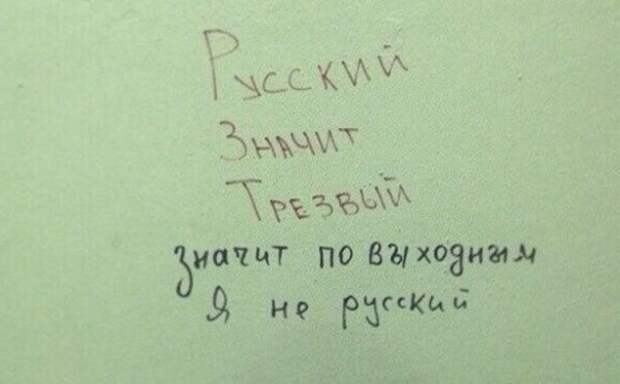 Русский
Значит
Трезвый
значит по выходным
Я не русский